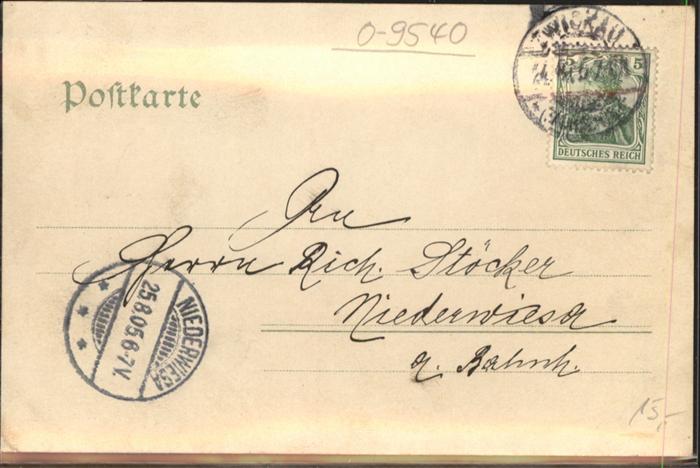 0-9540
Postkarte
ZWICKAU
5
DEUTSCHES REICH
Herrn Rich. Stöcker
Niederwiesa
a. Bahnh.
NIEDERWIESA
25.8.05.6-7V.
15,-